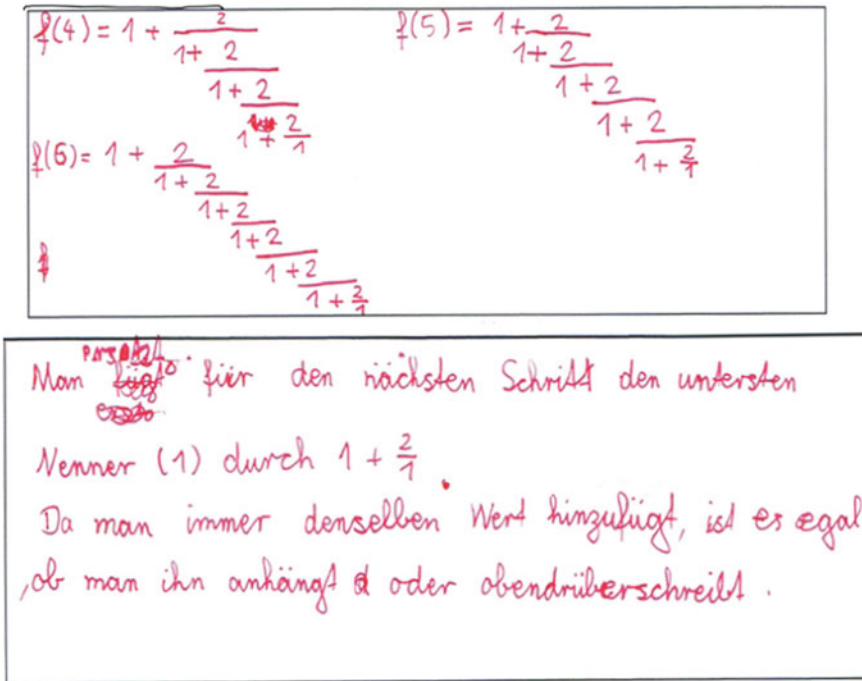 f(4) = 1 + 2/(1 + 2/(1 + 2/(1 + 2/1)))
f(5) = 1 + 2/(1 + 2/(1 + 2/(1 + 2/(1 + 2/1))))
f(6) = 1 + 2/(1 + 2/(1 + 2/(1 + 2/(1 + 2/(1 + 2/1)))))
Man ersetzt für den nächsten Schritt den untersten
Nenner (1) durch 1 + 2/1.
Da man immer denselben Wert hinzufügt, ist es egal
,ob man ihn anhängt oder obendrüberschreibt.